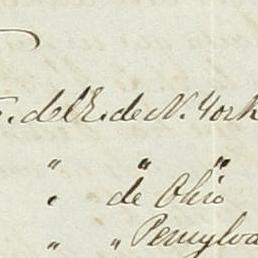 . del E. de N. York
" " "
" de Ohio
" " Pensylva